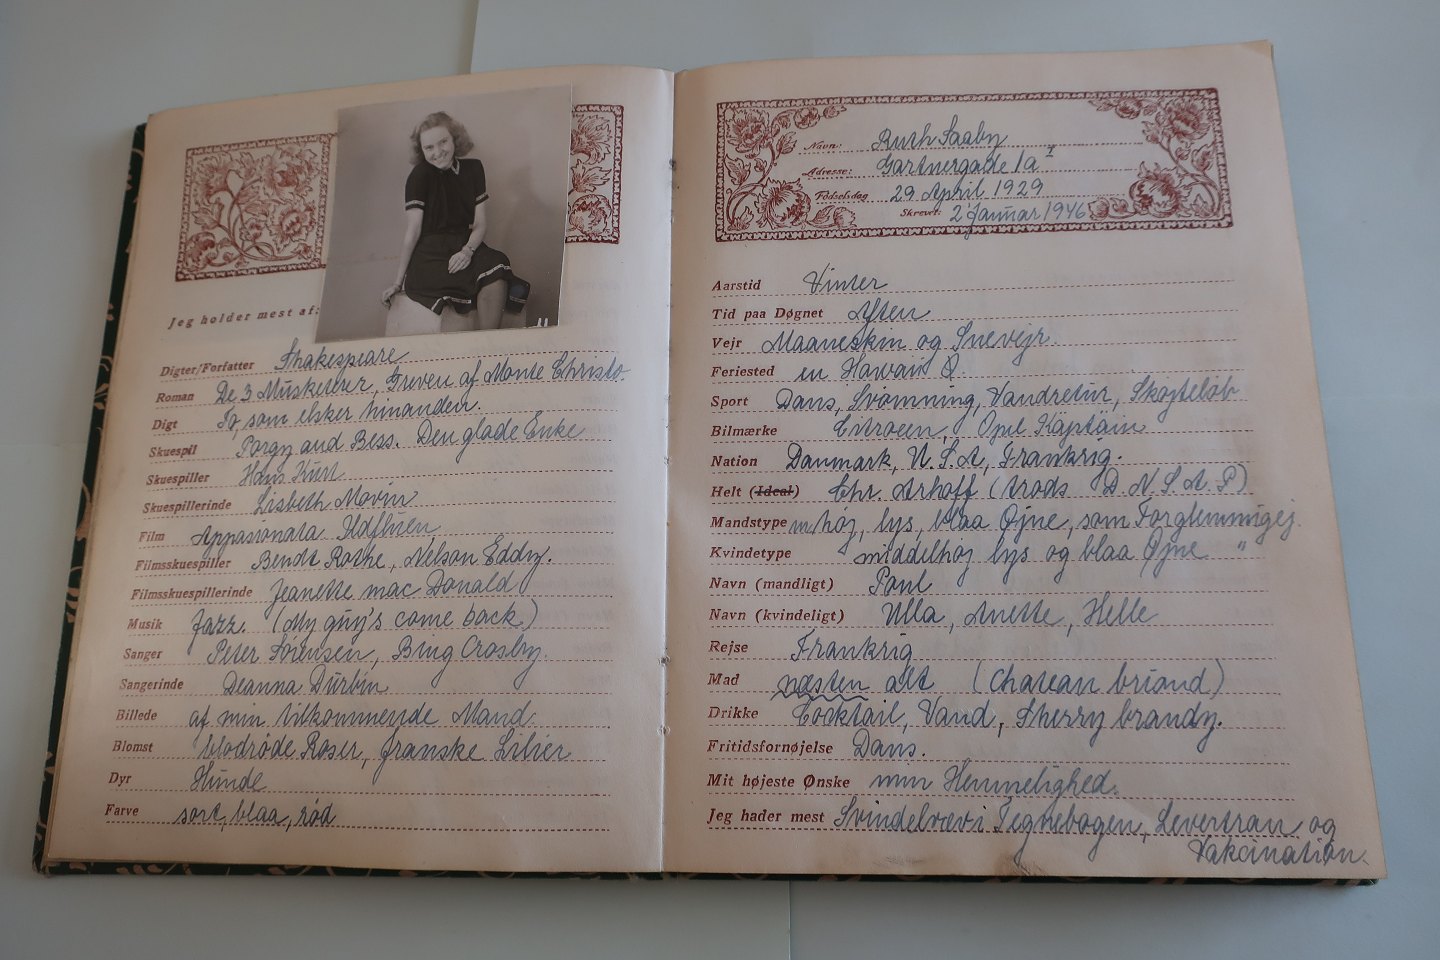 Jeg holder mest af:
Digter/Forfatter Shakespeare
Roman De 3 Musketerer, Greven af Monte Christo.
Digt To, som elsker hinanden.
Skuespil Porgy and Bess. Den glade Enke
Skuespiller Hans Kurt
Skuespillerinde Lisbeth Movin
Film Appasionata. Udflugten
Filmsskuespiller Bendt Rothe, Nelson Eddy.
Filmsskuespillerinde Jeanette mac Donald
Musik Jazz. (My guy's come back)
Sanger Peter Sørensen, Bing Crosby.
Sangerinde Deanna Durbin
Billede af min tilkommende Mand.
Blomst blodrøde Roser, franske Lilier
Dyr Hunde
Farve sort, blaa, rød
Navn: Ruth Saaby
Adresse: Gartnergade 1a
Fødselsdag 29 April 1929
Skrevet: 2 Januar 1946
Aarstid Vinter
Tid paa Døgnet Aften
Vejr Maaneskin og Snevejr.
Feriested en Hawaii Ø
Sport Dans, Svømning, Vandretur, Skøjteløb
Bilmærke Citroeen, Opel Kaptain
Nation Danmark, U.S.A, Frankrig.
Helt (Ideal) Chr. Arhoff (trods D.N.S.A.P)
Mandstype m/høj, lys, blaa Øjne, som Forglemmigej.
Kvindetype middelhøj lys og blaa Øjne "
Navn (mandligt) Poul
Navn (kvindeligt) Ulla, Anette, Helle
Rejse Frankrig
Mad næsten alt (Chateau briand)
Drikke Cocktail, Vand, Sherry brandy.
Fritidsfornøjelse Dans.
Mit højeste Ønske min Hemmelighed.
Jeg hader mest Svindelvæv i Tegnebogen, Levertran og
Vakcination.